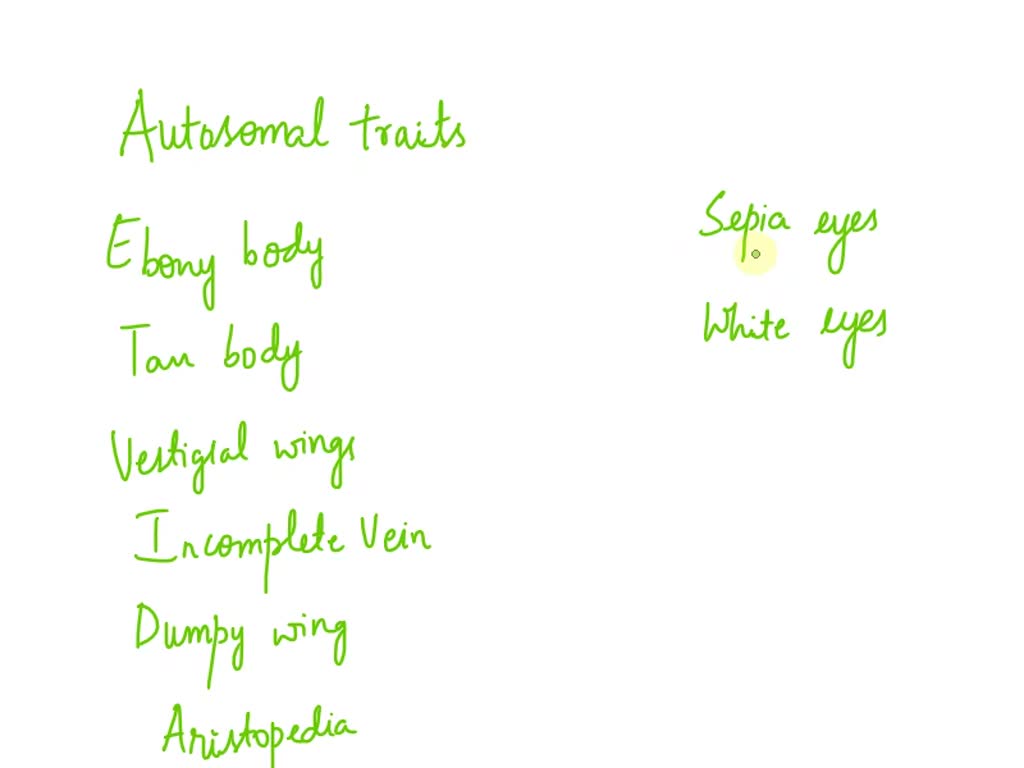 Autosomal traits
Ebony body
Tan body
Vestigial wings
Incomplete Vein
Dumpy wing
Aristopedia
Sepia eyes
White eyes